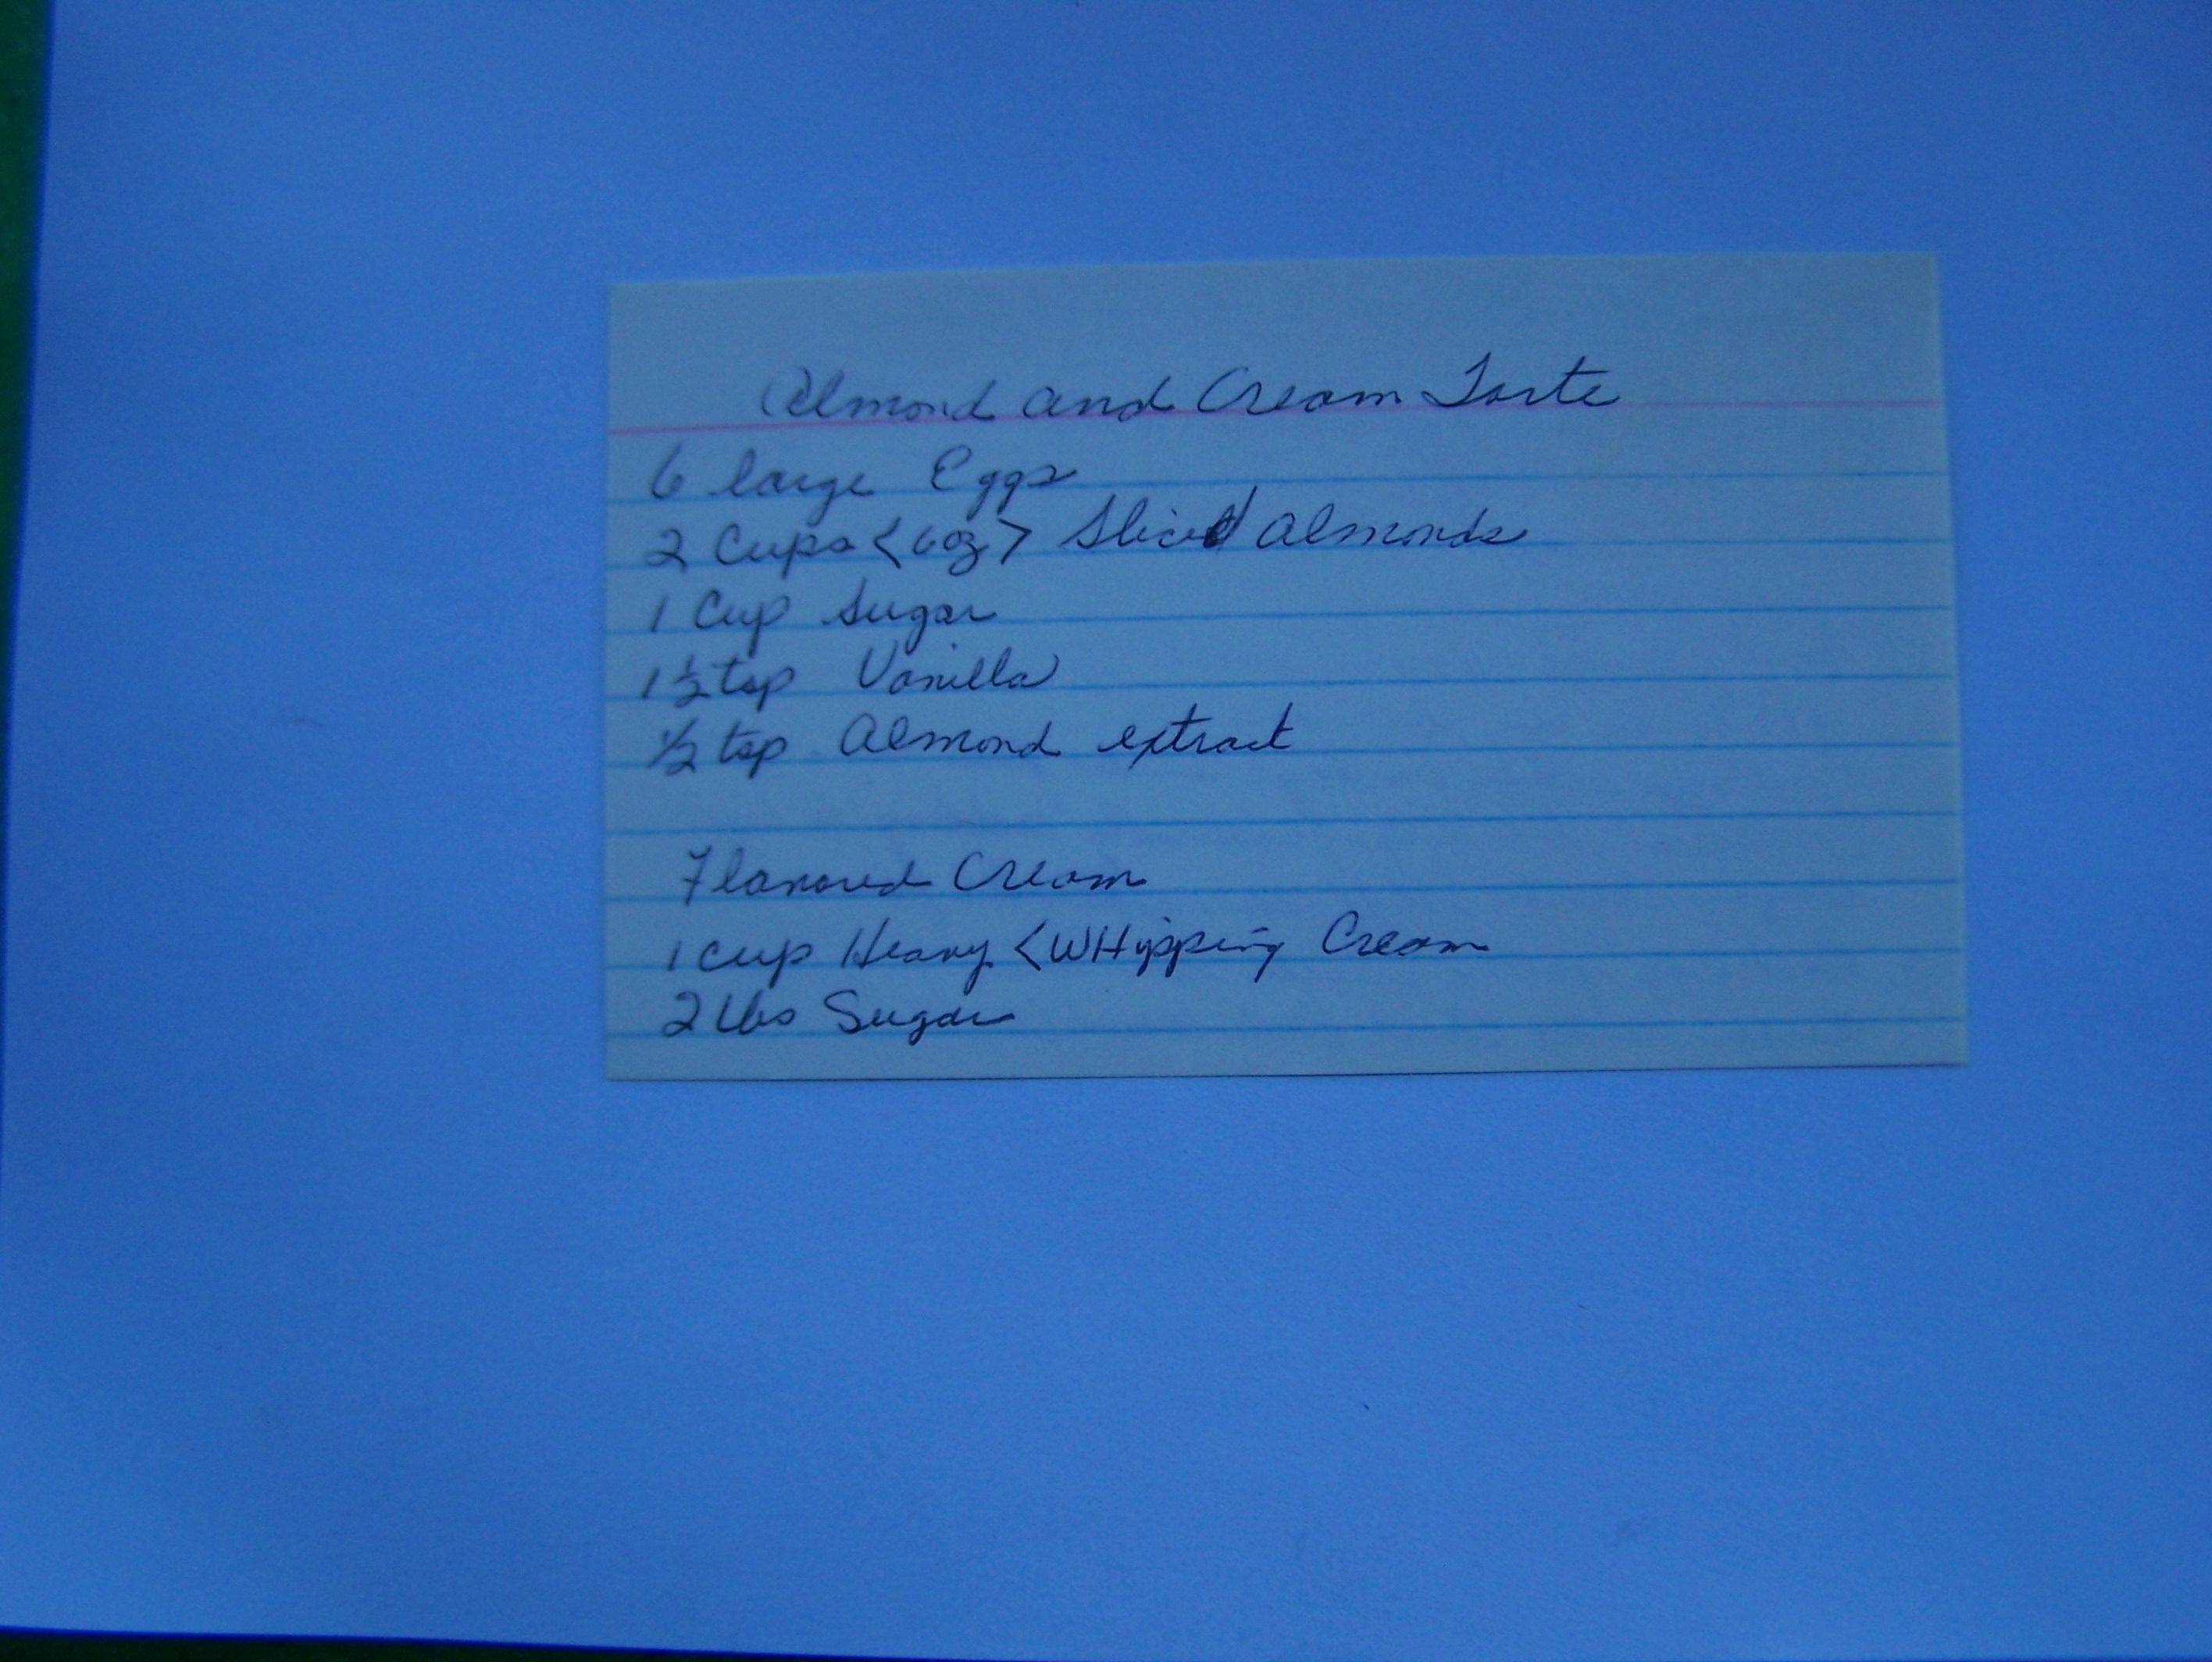 Almond and Cream Torte
6 large Eggs
2 Cups <6oz> Sliced Almonds
1 Cup Sugar
1 1/2 tsp Vanilla
1/2 tsp Almond extract
Flavored Cream
1 cup Heavy <WHipping Cream
2 Lbs Sugar